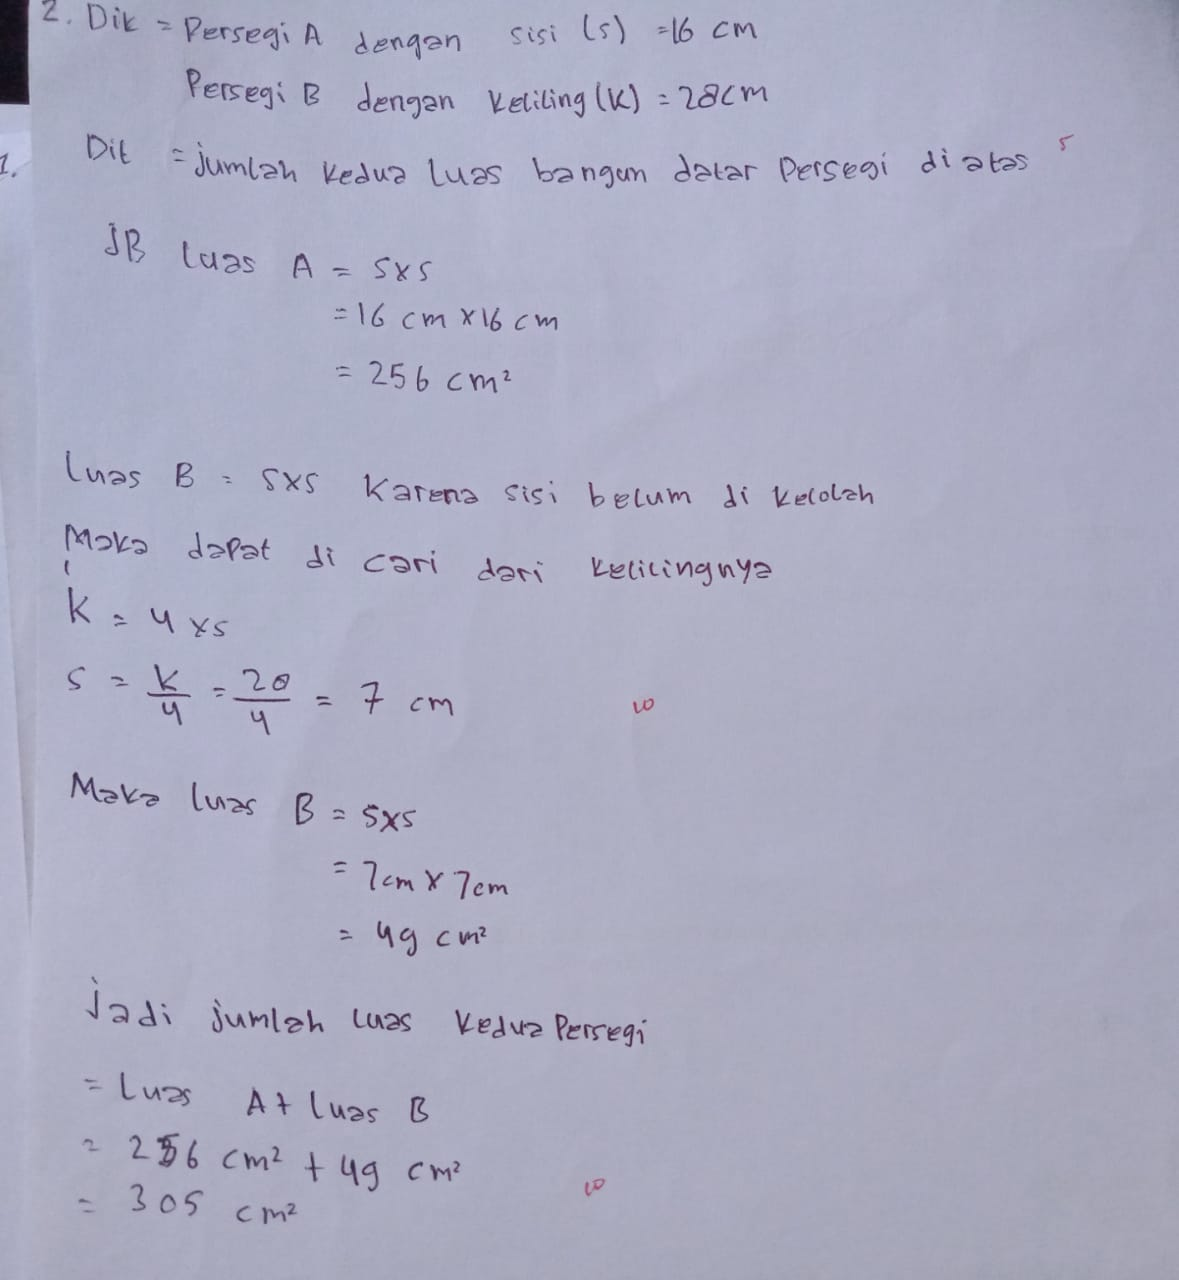 2. Dik = Persegi A dengan sisi (s) = 16 cm
Persegi B dengan keliling (K) = 28 cm
1.
Dit = jumlah kedua luas bangun datar persegi di atas
5
JB luas A = s x s
= 16 cm x 16 cm
= 256 cm²
Luas B = s x s Karena sisi belum di kelolah
Maka dapat di cari dari kelilingnya
K = 4 x s
s = K/4 = 28/4 = 7 cm
10
Maka luas B = s x s
= 7 cm x 7 cm
= 49 cm²
Jadi jumlah luas kedua persegi
= Luas A + luas B
= 256 cm² + 49 cm²
= 305 cm²
10